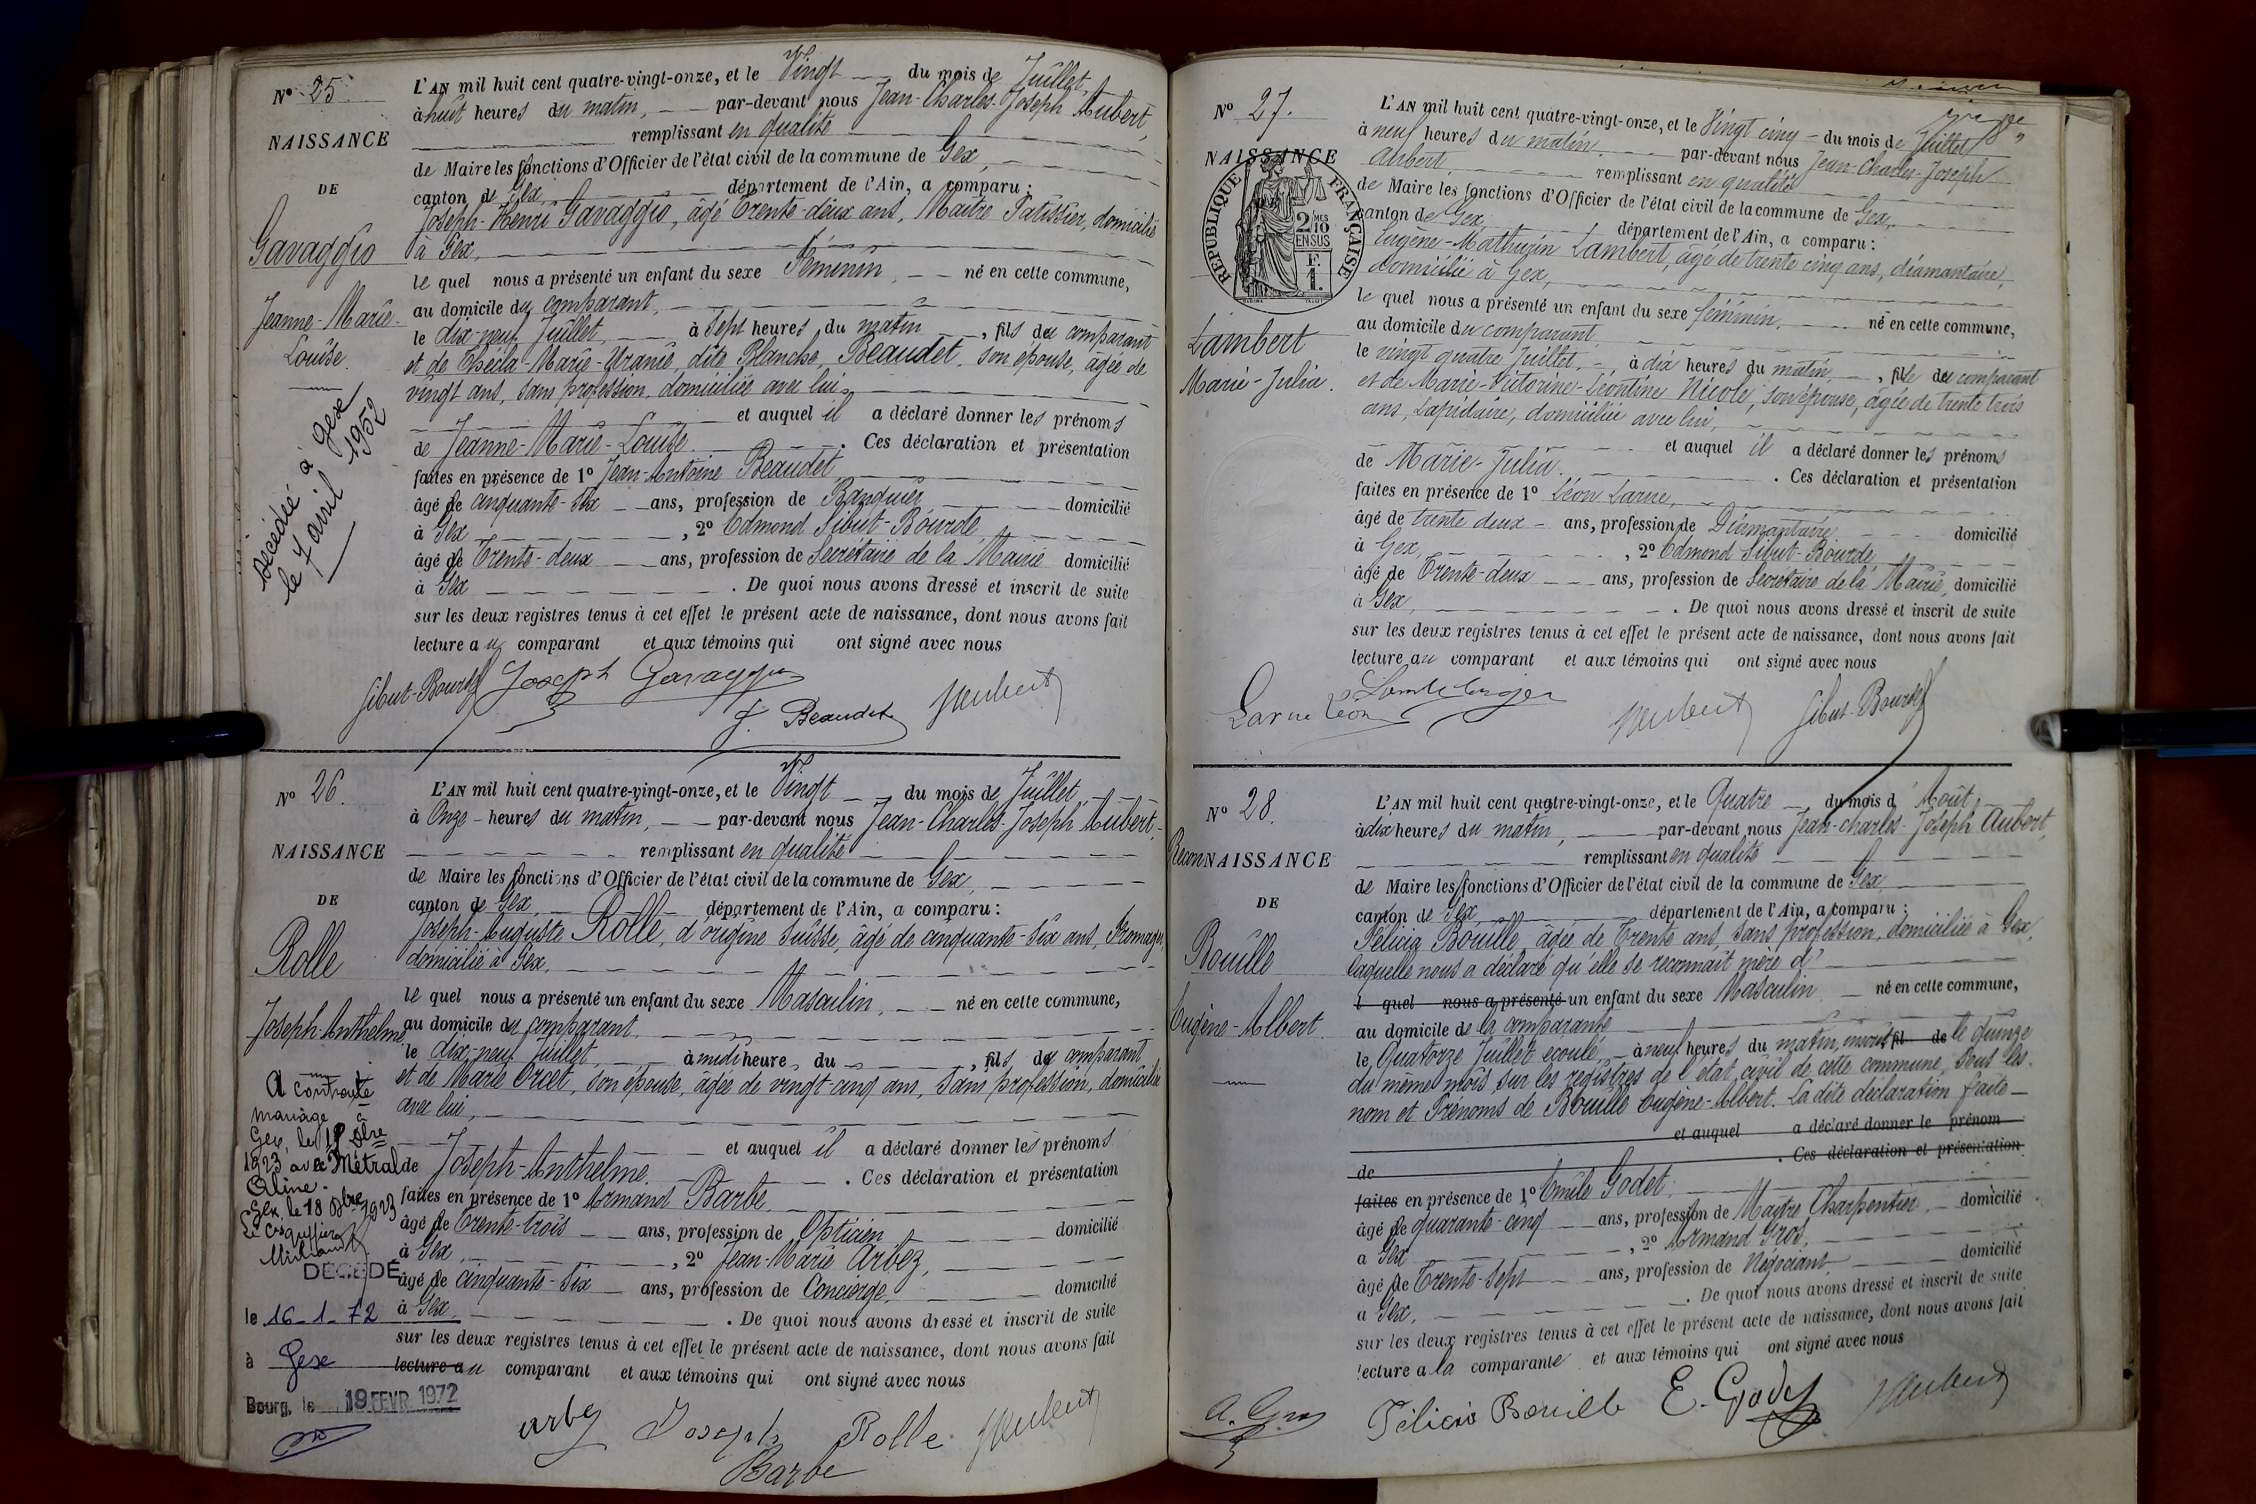 N° 25
NAISSANCE
DE
Gavaggio
Jeanne-Marie-
Louise.
décédée à Gex
le 7 avril 1952
L'AN mil huit cent quatre-vingt-onze, et le Vingt du mois de Juillet,
à huit heures du matin, par-devant nous Jean-Charles-Joseph Aubert,
remplissant en qualité
de Maire les fonctions d'Officier de l'état civil de la commune de Gex,
canton de Gex, département de l'Ain, a comparu :
Joseph-Henri Gavaggio, âgé Trente-deux ans, Maître Patissier, domicilié
à Gex,
le quel nous a présenté un enfant du sexe Féminin, né en cette commune,
au domicile du comparant,
le dix-neuf Juillet, à Sept heures du matin, fils du comparant
et de Thécla-Marie-Uranie, dite Blanche, Beaudet, son épouse, âgée de
vingt ans, sans profession, domiciliée avec lui,
et auquel il a déclaré donner les prénoms
de Jeanne-Marie-Louise. Ces déclaration et présentation
faites en présence de 1° Jean-Antoine Beaudet,
âgé de cinquante-six ans, profession de Banquier, domicilié
à Gex, 2° Edmond Sibut-Bourde
âgé de Trente-deux ans, profession de Secrétaire de la Mairie domicilié
à Gex. De quoi nous avons dressé et inscrit de suite
sur les deux registres tenus à cet effet le présent acte de naissance, dont nous avons fait
lecture au comparant et aux témoins qui ont signé avec nous
Sibut-Bourde Joseph Gavaggio
J. Beaudet Aubert
N° 26.
NAISSANCE
DE
Rolle
Joseph-Anthelme
A contracté
mariage à
Gex, le 18 Xbre
1923, avec Métral
Aline.
Gex, le 18 Xbre 1923
Le Greffier
DÉCÉDÉ
le 16-1-72
à Gex
Bourg, le 19 FEVR. 1972
L'AN mil huit cent quatre-vingt-onze, et le Vingt du mois de Juillet,
à Onze heures du matin, par-devant nous Jean-Charles-Joseph Aubert,
remplissant en qualité
de Maire les fonctions d'Officier de l'état civil de la commune de Gex,
canton de Gex, département de l'Ain, a comparu :
Joseph-Auguste Rolle, d'origine Suisse, âgé de cinquante-six ans, Fromager,
domicilié à Gex,
le quel nous a présenté un enfant du sexe Masculin, né en cette commune,
au domicile du comparant,
le dix-neuf Juillet, à midi heure, du, fils du comparant
et de Marie Orcet, son épouse, âgée de vingt-cinq ans, sans profession, domiciliée
avec lui,
et auquel il a déclaré donner les prénoms
de Joseph-Anthelme. Ces déclaration et présentation
faites en présence de 1° Armand Barbe,
âgé de Trente-trois ans, profession de Opticien domicilié
à Gex, 2° Jean-Marie Arbez,
âgé de cinquante-six ans, profession de Concierge, domicilié
à Gex. De quoi nous avons dressé et inscrit de suite
sur les deux registres tenus à cet effet le présent acte de naissance, dont nous avons fait
lecture au comparant et aux témoins qui ont signé avec nous
Arbez Joseph Rolle Aubert
Barbe
N° 27.
NAISSANCE
REPUBLIQUE FRANÇAISE
2/10 MES
EN SUS
F.
1.
Lambert
Marie-Julia.
L'AN mil huit cent quatre-vingt-onze, et le Vingt cinq du mois de Juillet
à neuf heures du matin, par-devant nous Jean-Charles-Joseph
Aubert remplissant en qualité
de Maire les fonctions d'Officier de l'état civil de la commune de Gex,
canton de Gex, département de l'Ain, a comparu :
Eugène-Mathurin Lambert, âgé de trente cinq ans, diamantaire,
domicilié à Gex,
le quel nous a présenté un enfant du sexe féminin, né en cette commune,
au domicile du comparant
le vingt quatre Juillet, à dix heures du matin, fille du comparant
et de Marie-Victorine-Léontine Nicole, son épouse, âgée de trente trois
ans, Lapidaire, domiciliée avec lui,
et auquel il a déclaré donner les prénoms
de Marie-Julia. Ces déclaration et présentation
faites en présence de 1° Léon Larue,
âgé de trente deux ans, profession de Diamantaire domicilié
à Gex, 2° Edmond Sibut-Bourde
âgé de Trente-deux ans, profession de Secrétaire de la Mairie, domicilié
à Gex. De quoi nous avons dressé et inscrit de suite
sur les deux registres tenus à cet effet le présent acte de naissance, dont nous avons fait
lecture au comparant et aux témoins qui ont signé avec nous
Larue Léon Aubert Sibut-Bourde
N° 28.
ReconNAISSANCE
DE
Bouille
Eugène-Albert
L'AN mil huit cent quatre-vingt-onze, et le Quatre du mois d'Août,
à dix heures du matin, par-devant nous Jean-Charles-Joseph Aubert,
remplissant en qualité
de Maire les fonctions d'Officier de l'état civil de la commune de Gex,
canton de Gex, département de l'Ain, a comparu :
Félicia Bouille, âgée de Trente ans, sans profession, domiciliée à Gex,
laquelle nous a déclaré qu'elle se reconnaît mère d'
l quel nous a présenté un enfant du sexe Masculin né en cette commune,
au domicile de la comparante
le Quatorze Juillet écoulé, à neuf heures du matin, inscrit fil de le quinze
du même mois, sur les registres de l'état civil de cette commune, sous les
nom et Prénoms de Bouille Eugène-Albert. La dite déclaration faite
et auquel a déclaré donner le prénom
de . Ces déclaration et présentation
faites en présence de 1° Emile Godet,
âgé de quarante-cinq ans, profession de Maître Charpentier, domicilié
à Gex, 2° Armand Gros,
âgé de Trente-sept ans, profession de Négociant domicilié
à Gex. De quoi nous avons dressé et inscrit de suite
sur les deux registres tenus à cet effet le présent acte de naissance, dont nous avons fait
lecture à la comparante et aux témoins qui ont signé avec nous
A. Gros Félicia Bouille E. Godet Aubert